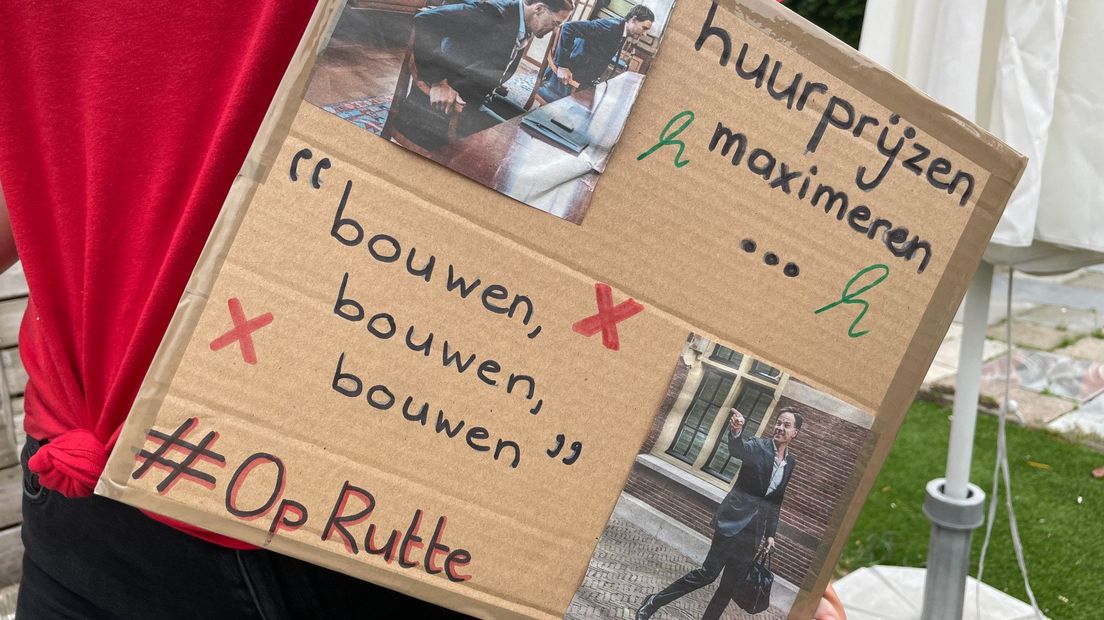 huurprijzen
maximeren
...
“bouwen,
bouwen,
bouwen”
#Op Rutte